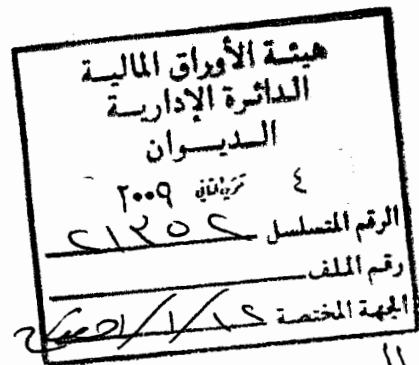 هيئة الأوراق المالية
الدائرة الإدارية
الديوان
٤ تشرين الثاني ٢٠٠٩
الرقم المتسلسل ٢١٣٥٢
رقم الملف
الجهة المختصة